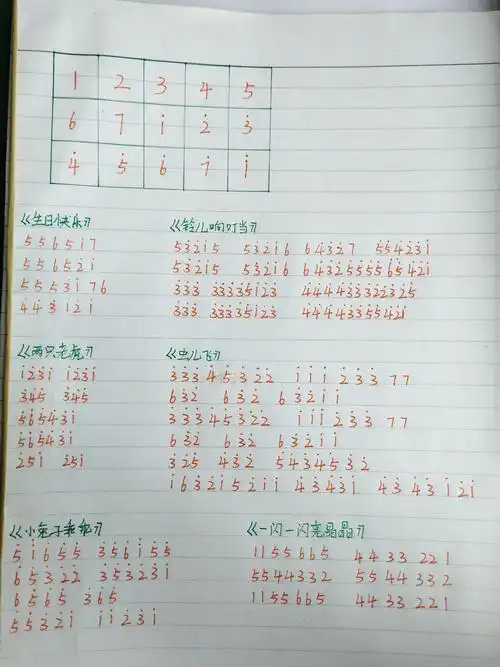 1 2 3 4 5
6 7 i̇ 2̇ 3̇
4̇ 5̇ 6̇ 7̇ i̇
《生日快乐》
5 5 6 5 i̇ 7
5 5 6 5 2̇ i̇
5 5 5̇ 3̇ i̇ 7 6
4̇ 4̇ 3̇ i̇ 2̇ i̇
《铃儿响叮当》
5 3̇ 2̇ i̇ 5 5 3̇ 2̇ i̇ 6 6 4̇ 3̇ 2̇ 7 5̇ 5̇ 4̇ 2̇ 3̇ i̇
5 3̇ 2̇ i̇ 5 5 3̇ 2̇ i̇ 6 6 4̇ 3̇ 2̇ 5̇ 5̇ 5̇ 5̇ 6̇ 5̇ 4̇ 2̇ i̇
3̇ 3̇ 3̇ 3̇ 3̇ 3̇ 3̇ 5̇ i̇ 2̇ 3̇ 4̇ 4̇ 4̇ 4̇ 3̇ 3̇ 3̇ 2̇ 2̇ 3̇ 2̇ 5̇
3̇ 3̇ 3̇ 3̇ 3̇ 3̇ 3̇ 5̇ i̇ 2̇ 3̇ 4̇ 4̇ 4̇ 4̇ 3̇ 3̇ 5̇ 5̇ 4̇ 2̇ i̇
《两只老虎》
i̇ 2̇ 3̇ i̇ i̇ 2̇ 3̇ i̇
3̇ 4̇ 5̇ 3̇ 4̇ 5̇
5̇ 6̇ 5̇ 4̇ 3̇ i̇
5̇ 6̇ 5̇ 4̇ 3̇ i̇
2̇ 5 i̇ 2̇ 5 i̇
《虫儿飞》
3̇ 3̇ 3̇ 4̇ 5̇ 3̇ 2̇ 2̇ i̇ i̇ i̇ 2̇ 3̇ 3̇ 7 7
6 3̇ 2̇ 6 3̇ 2̇ 6 3̇ 2̇ i̇ i̇
3̇ 3̇ 3̇ 4̇ 5̇ 3̇ 2̇ 2̇ i̇ i̇ i̇ 2̇ 3̇ 3̇ 7 7
6 3̇ 2̇ 6 3̇ 2̇ 6 3̇ 2̇ i̇ i̇
3̇ 2̇ 5̇ 4̇ 3̇ 2̇ 5̇ 4̇ 3̇ 4̇ 5̇ 3̇ 2̇
i̇ 6 3̇ 2̇ i̇ 5 2̇ i̇ i̇ 4̇ 3̇ 4̇ 3̇ i̇ 4̇ 3̇ 4̇ 3̇ i̇ 2̇ i̇
《小兔子乖乖》
5̇ i̇ 6̇ 5̇ 5̇ 3̇ 5̇ 6̇ i̇ 5̇ 5̇
6̇ 5̇ 3̇ 2̇ 2̇ 3̇ 5̇ 3̇ 2̇ 3̇ i̇
6̇ 5̇ 6̇ 5̇ 3̇ 6̇ 5̇
5̇ 5̇ 3̇ 2̇ i̇ i̇ i̇ 2̇ 3̇ i̇
《一闪一闪亮晶晶》
1 1 5 5 6 6 5 4 4 3 3 2 2 1
5 5 4 4 3 3 2 5 5 4 4 3 3 2
1 1 5 5 6 6 5 4 4 3 3 2 2 1